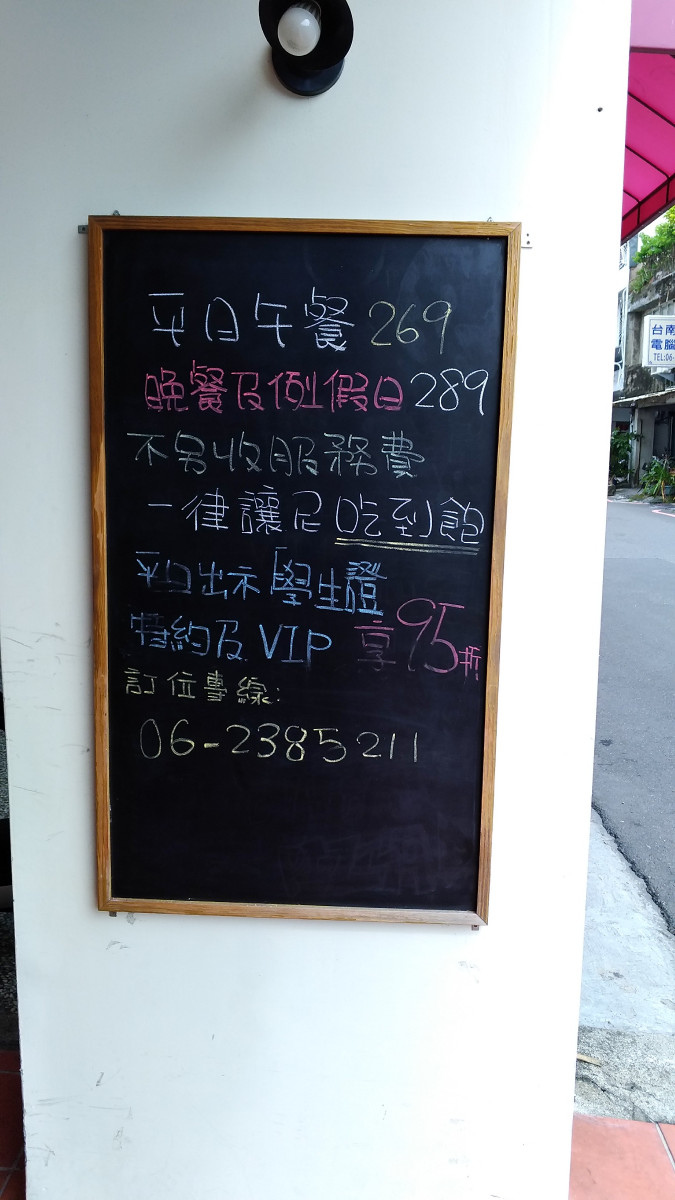 平日午餐269
晚餐及例假日289
不另收服務費
一律讓尼吃到飽
平日出示學生證
特約及VIP 享95折
訂位專線:
06-2385211
台南
電腦
TEL:06-